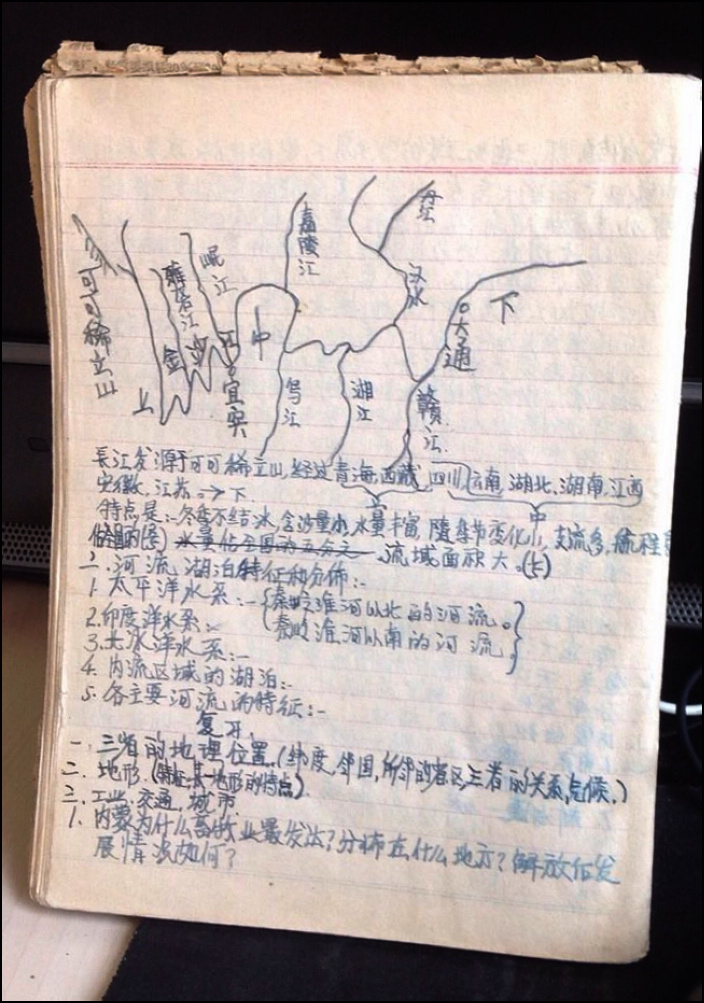 可可稀立山
上
雅砻江
金
沙
江
岷江
宜宾
中
嘉陵江
乌江
湘江
汉水
丹江
大通
下
赣江
長江发源于可可稀立山,经过青海,西藏,四川,云南,湖北,湖南,江西
安徽,江苏。→下
上
中
特点是:-冬季不结冰,含沙量小,水量丰富,随季节变化小,支流多,流程
流域面积大。(长)
二.河流,湖泊特征和分佈:-
1.太平洋水系:-{秦岭淮河以北的河流。
秦岭淮河以南的河流。}
2.印度洋水系:-
3.北冰洋水系:-
4.内流区域的湖泊:-
5.各主要河流的特征:-
复习,
一.三省的地理位置.(纬度,邻国,所邻的省区,三者的关系,气候.)
二.地形.(特征,其地形的特点)
三.工业.交通.城市.
1.内蒙为什么畜牧业最发法?分布在什么地方?解放后发
展情况如何?